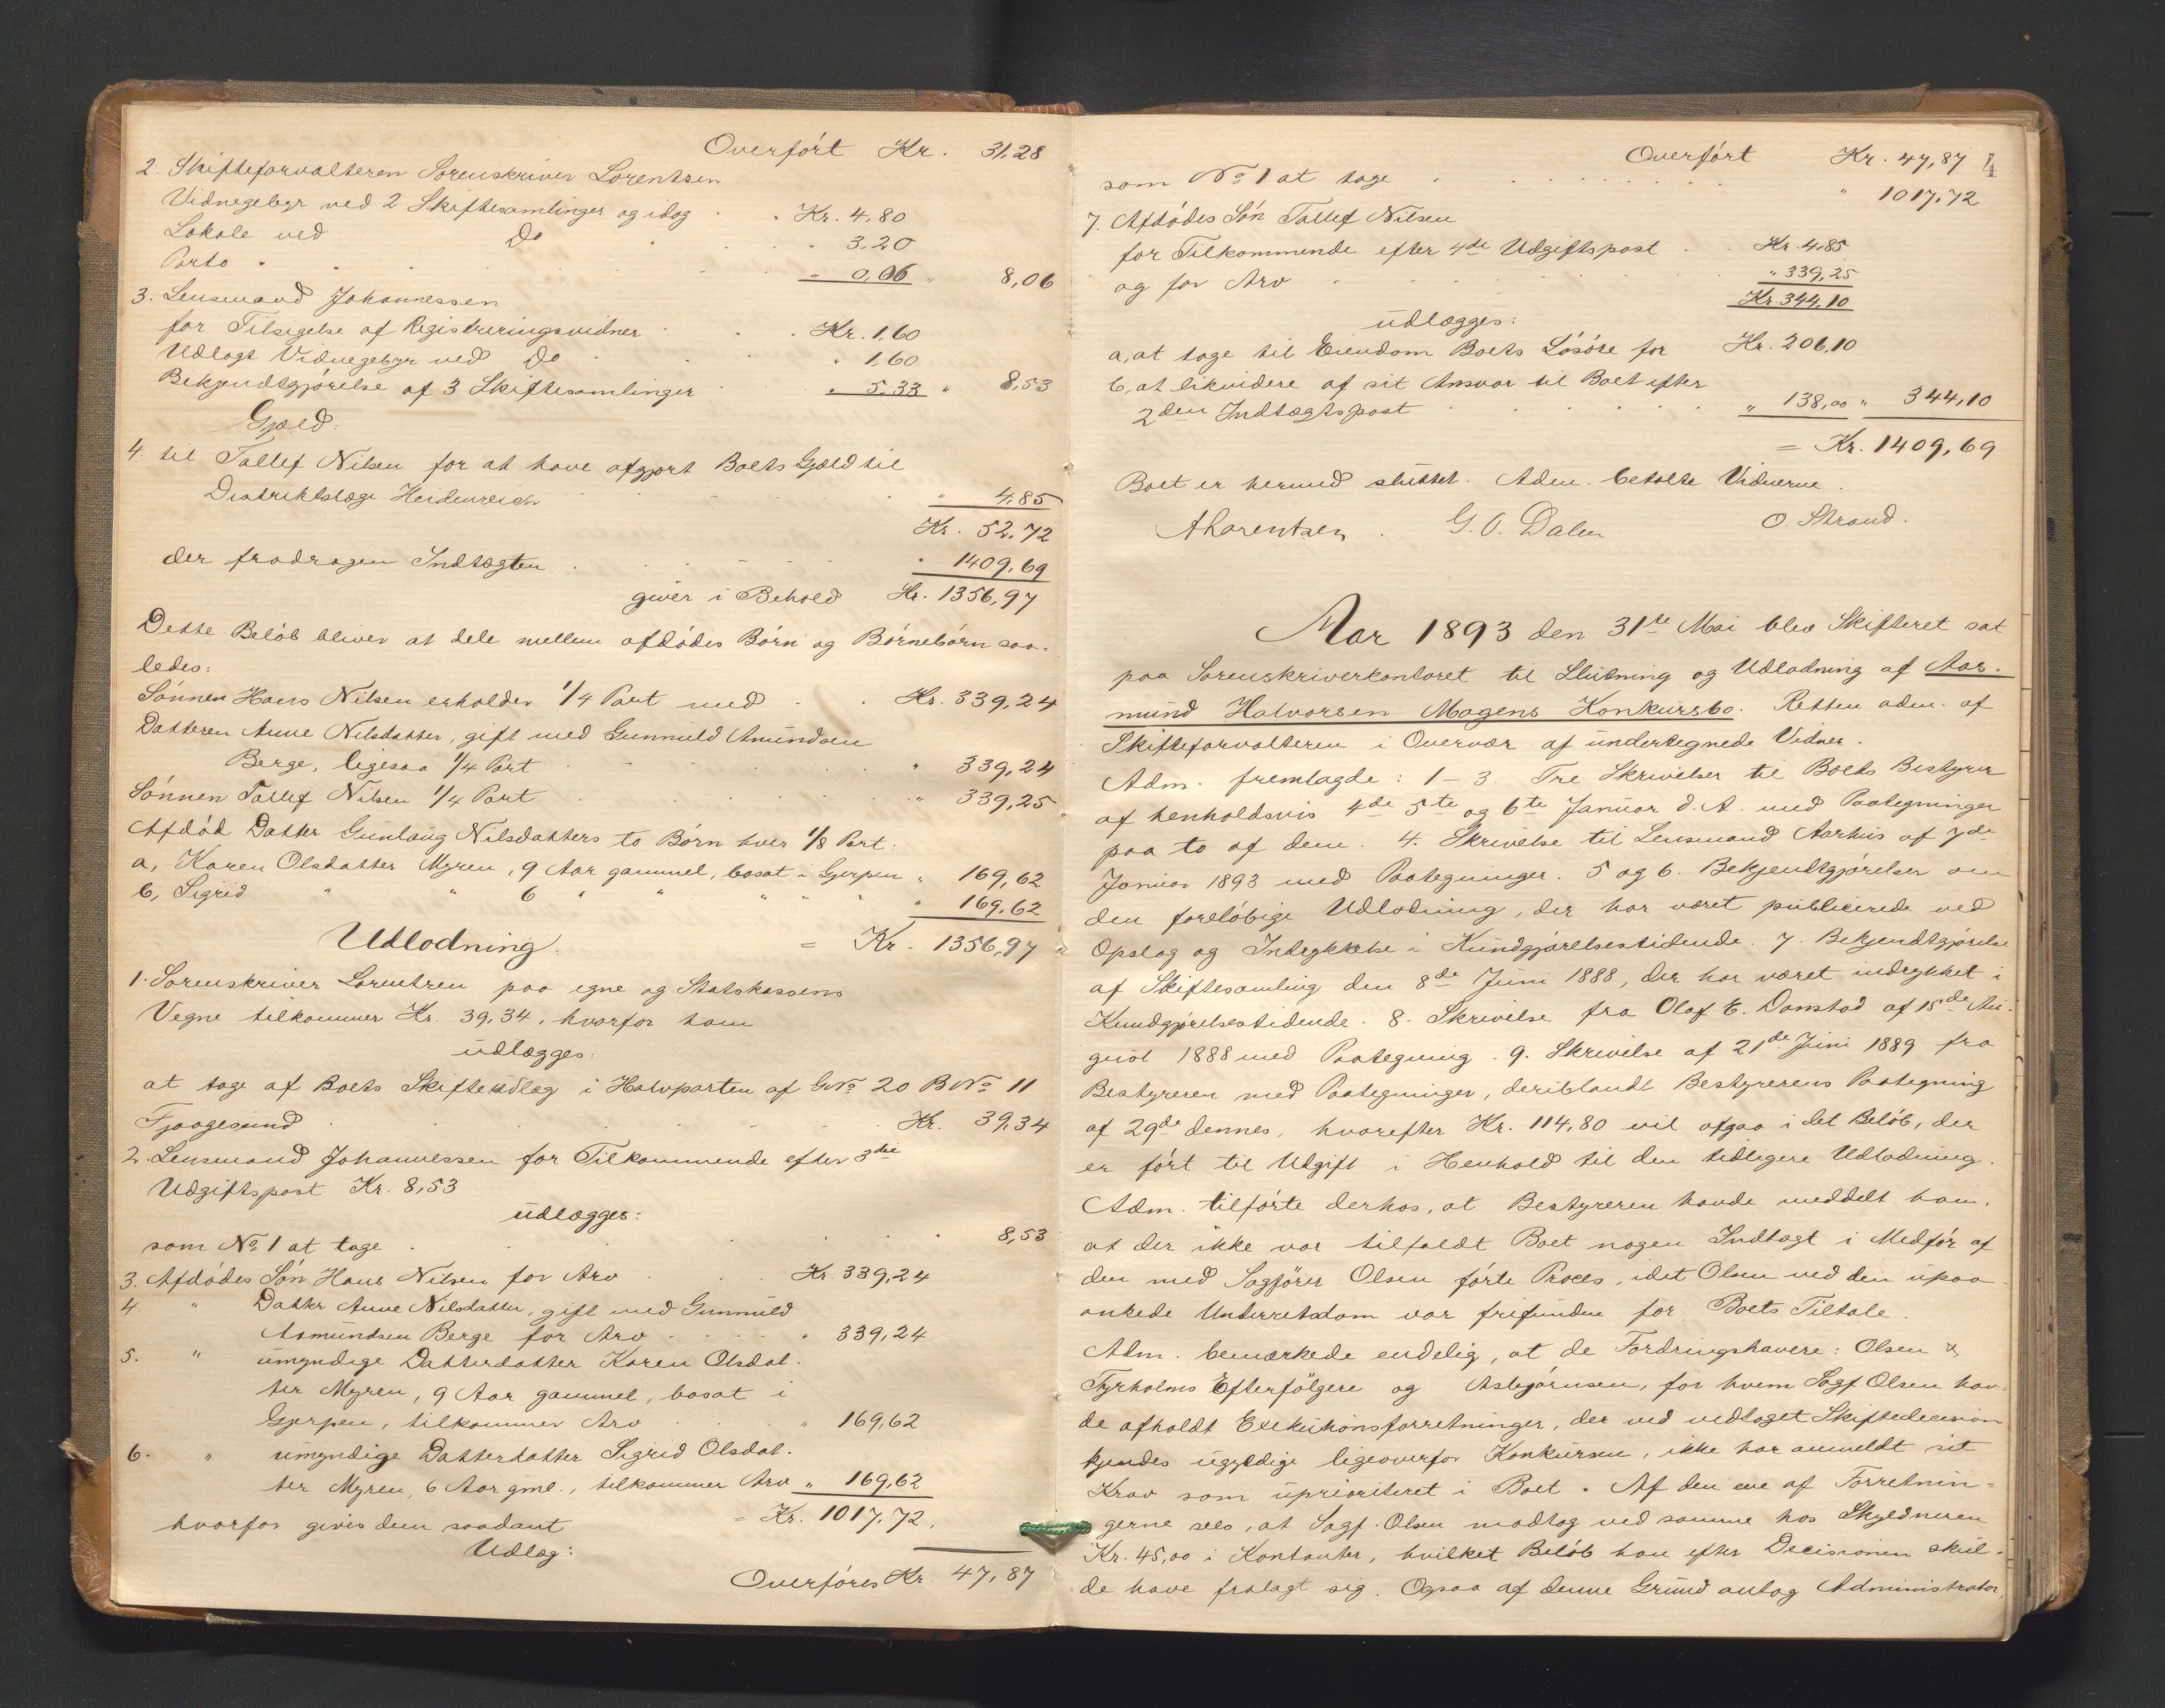 Overført Kr. 31,28
2. Skifteforvalteren Sorenskriver Lorentzen
Vidnegebyr ved 2 Skiftesamlinger og idag . . Kr. 4,80
Lokale ved Do . . . " 3,20
Porto . . . . " 0,06 " 8,06
3. Lensmand Johannessen
for Tilsigelse af Registreringsvidner . . . Kr. 1,60
Udlagt Vidnegebyr ved Do . . . " 1,60
Bekjendtgjørelse af 3 Skiftesamlinger . . " 5,33 " 8,53
Gjæld:
4. til Tallef Nilsen for at have afgjort Boets Gjæld til
Distriktslæge Heidenreich . . . " 4,85
Kr. 52,72
der fradragen Indtægten . . . " 1409,69
giver i Behold Kr. 1356,97
Dette Beløb bliver at dele mellem afdødes Børn og Børnebørn saa-
ledes:
Sønnen Hans Nilsen erholder 1/4 Part med . . Kr. 339,24
Datteren Anne Nilsdatter, gift med Gunnuld Amundsen
Berge, ligesaa 1/4 Part . . . " 339,24
Sønnen Tallef Nilsen 1/4 Part . . . " 339,25
Afdød Datter Gunlaug Nilsdatters to Børn hver 1/8 Part:
a, Karen Olsdatter Myren, 9 Aar gammel, bosat i Gjerpen " 169,62
b, Sigrid " " 6 " " " " " " 169,62
Udlodning: = Kr. 1356,97
1. Sorenskriver Lorentzen paa egne og Statskassens
Vegne tilkommer Kr. 39,34, hvorfor ham
udlægges:
at tage af Boets Skifteudlæg i Halvparten af GNo 20 BNo 11
Fjaagesund . . . Kr. 39,34
2. Lensmand Johannessen for Tilkommende efter 3die
Udgiftspost Kr. 8,53
udlægges:
som No 1 at tage . . . 8,53
3. Afdødes Søn Hans Nilsen for Arv . . . Kr. 339,24
4 " Datter Anne Nilsdatter, gift med Gunnuld
Asmundsen Berge for Arv . . . " 339,24
5. " umyndige Datterdatter Karen Olsdat-
ter Myren, 9 Aar gammel, bosat i
Gjerpen, tilkommer Arv . . . " 169,62
6. " umyndige Datterdatter Sigrid Olsdat-
ter Myren, 6 Aar gml., tilkommer Arv " 169,62
hvorfor gives dem saadant = Kr. 1017,72,
Udlæg:
Overføres Kr. 47,87
Overført Kr. 47,87 4
som No 1 at tage . . . " 1017,72
7. Afdødes Søn Tallef Nilsen
for Tilkommende efter 4de Udgiftspost . . Kr. 4,85
og for Arv . . . " 339,25
Kr. 344,10
udlægges:
a, at tage til Eiendom Boets Løsøre for Kr. 206,10
b, at likvidere af sit Ansvar til Boet efter
2den Indtægtspost . . . " 138,00 " 344,10
= Kr. 1409,69
Boet er hermed sluttet. Adm. betalte Vidnerne.
ALorentzen. G. O. Dalen O. Strand.
Aar 1893 den 31te Mai blev Skifteret sat
paa Sorenskriverkontoret til Slutning og Udlodning af Aas-
mund Halvorsen Mogens Konkursbo. Retten adm. af
Skifteforvalteren i Overvær af undertegnede Vidner.
Adm. fremlagde: 1-3. Tre Skrivelser til Boets Bestyrer
af henholdsvis 4de 5te og 6te Januar d. A. med Paategninger
paa to af dem. 4. Skrivelse til Lensmand Aarhus af 7de
Januar 1893 med Paategninger. 5 og 6. Bekjendtgjørelser om
den foreløbige Udlodning, der har været publicerede ved
Opslag og Indrykkelse i Kundgjørelsestidende. 7. Bekjendtgjørelse
af Skiftesamling den 8de Juni 1888, der har været indrykket i
Kundgjørelsestidende. 8. Skrivelse fra Olaf E. Damstad af 15de Au-
gust 1888 med Paategning. 9. Skrivelse af 21de Juni 1889 fra
Bestyreren med Paategninger, deriblandt Bestyrerens Paategning
af 29de dennes, hvorefter Kr. 114,80 vil afgaa i det Beløb, der
er ført til Udgift i Henhold til den tidligere Udlodning.
Adm. tilførte derhos, at Bestyreren havde meddelt ham,
at der ikke var tilfaldt Boet nogen Indtægt i Medfør af
den med Sagfører Olsen førte Proces, idet Olsen ved den upaa-
ankede Underretsdom var frifunden for Boets Tiltale.
Adm. bemærkede endelig, at de Fordringshavere: Olsen &
Tyrholms Efterfølgere og Asbjørnsen, for hvem Sagf. Olsen hav-
de afholdt Exekutionsforretninger, der ved vedtaget Skiftedecision
kjendes ugyldige ligeoverfor Konkursen, ikke har anmeldt sit
Krav som uprioriteret i Boet. Af den ene af Forretnin-
gerne sees, at Sagf. Olsen modtog ved samme hos Skyldneren
Kr. 45,00 i Kontanter, hvilket Beløb han efter Decisionen skul-
de have fralagt sig. Ogsaa af denne Grund antog Administrator,